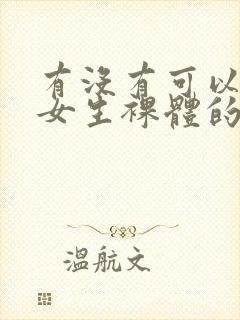 有沒有可以
女生裸體的
溫航文